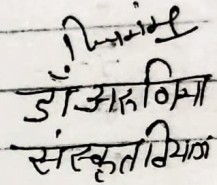 डॉ. अरुणिमा
संस्कृत विभाग